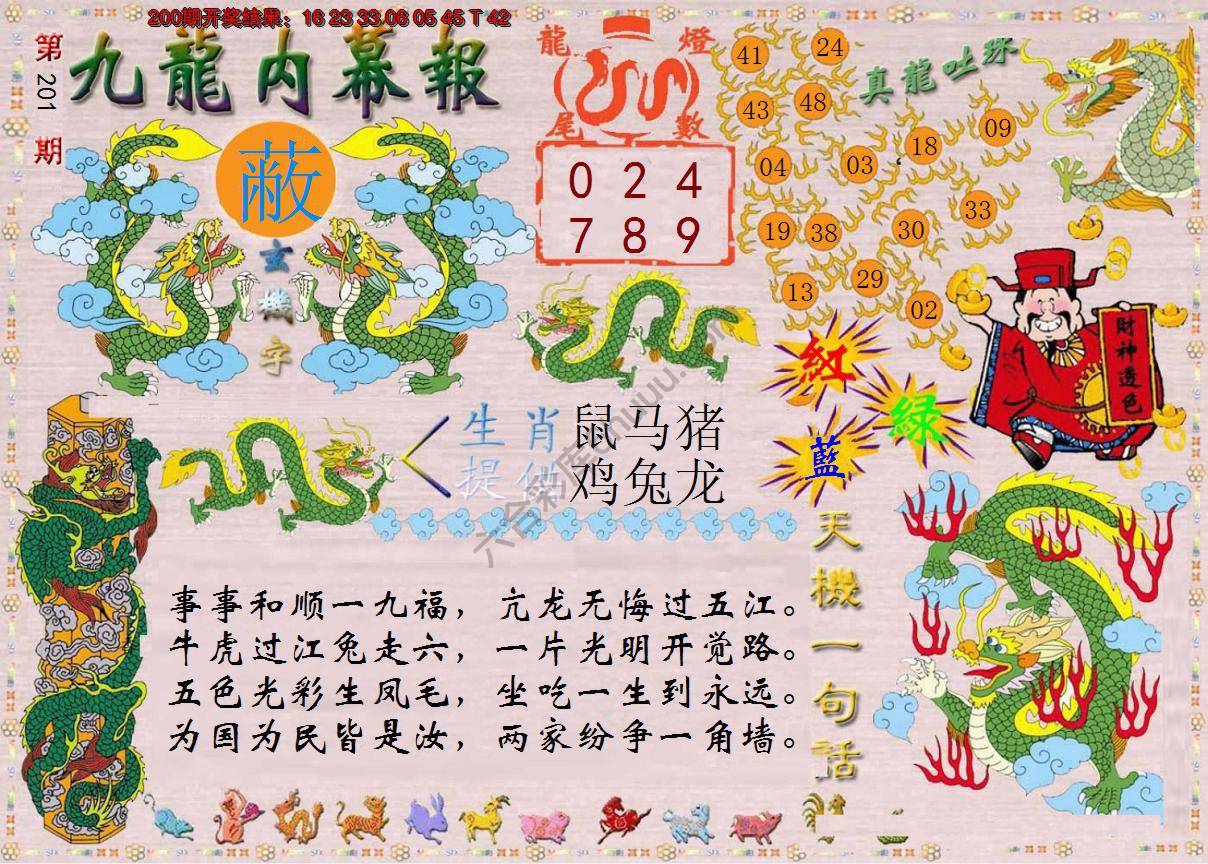 200期开奖结果：16 23 33.06 05 45 T 42
第201期
九龍内幕報
蔽
玄機字
龍燈
尾數
0 2 4
7 8 9
真龍吐珠
41 24
43 48
04 03 18 09
19 38 30 33
13 29 02
財神透色
紅
綠
藍
生肖
提供
鼠马猪
鸡兔龙
事事和顺一九福，亢龙无悔过五江。
牛虎过江兔走六，一片光明开觉路。
五色光彩生凤毛，坐吃一生到永远。
为国为民皆是汝，两家纷争一角墙。
天機一句話